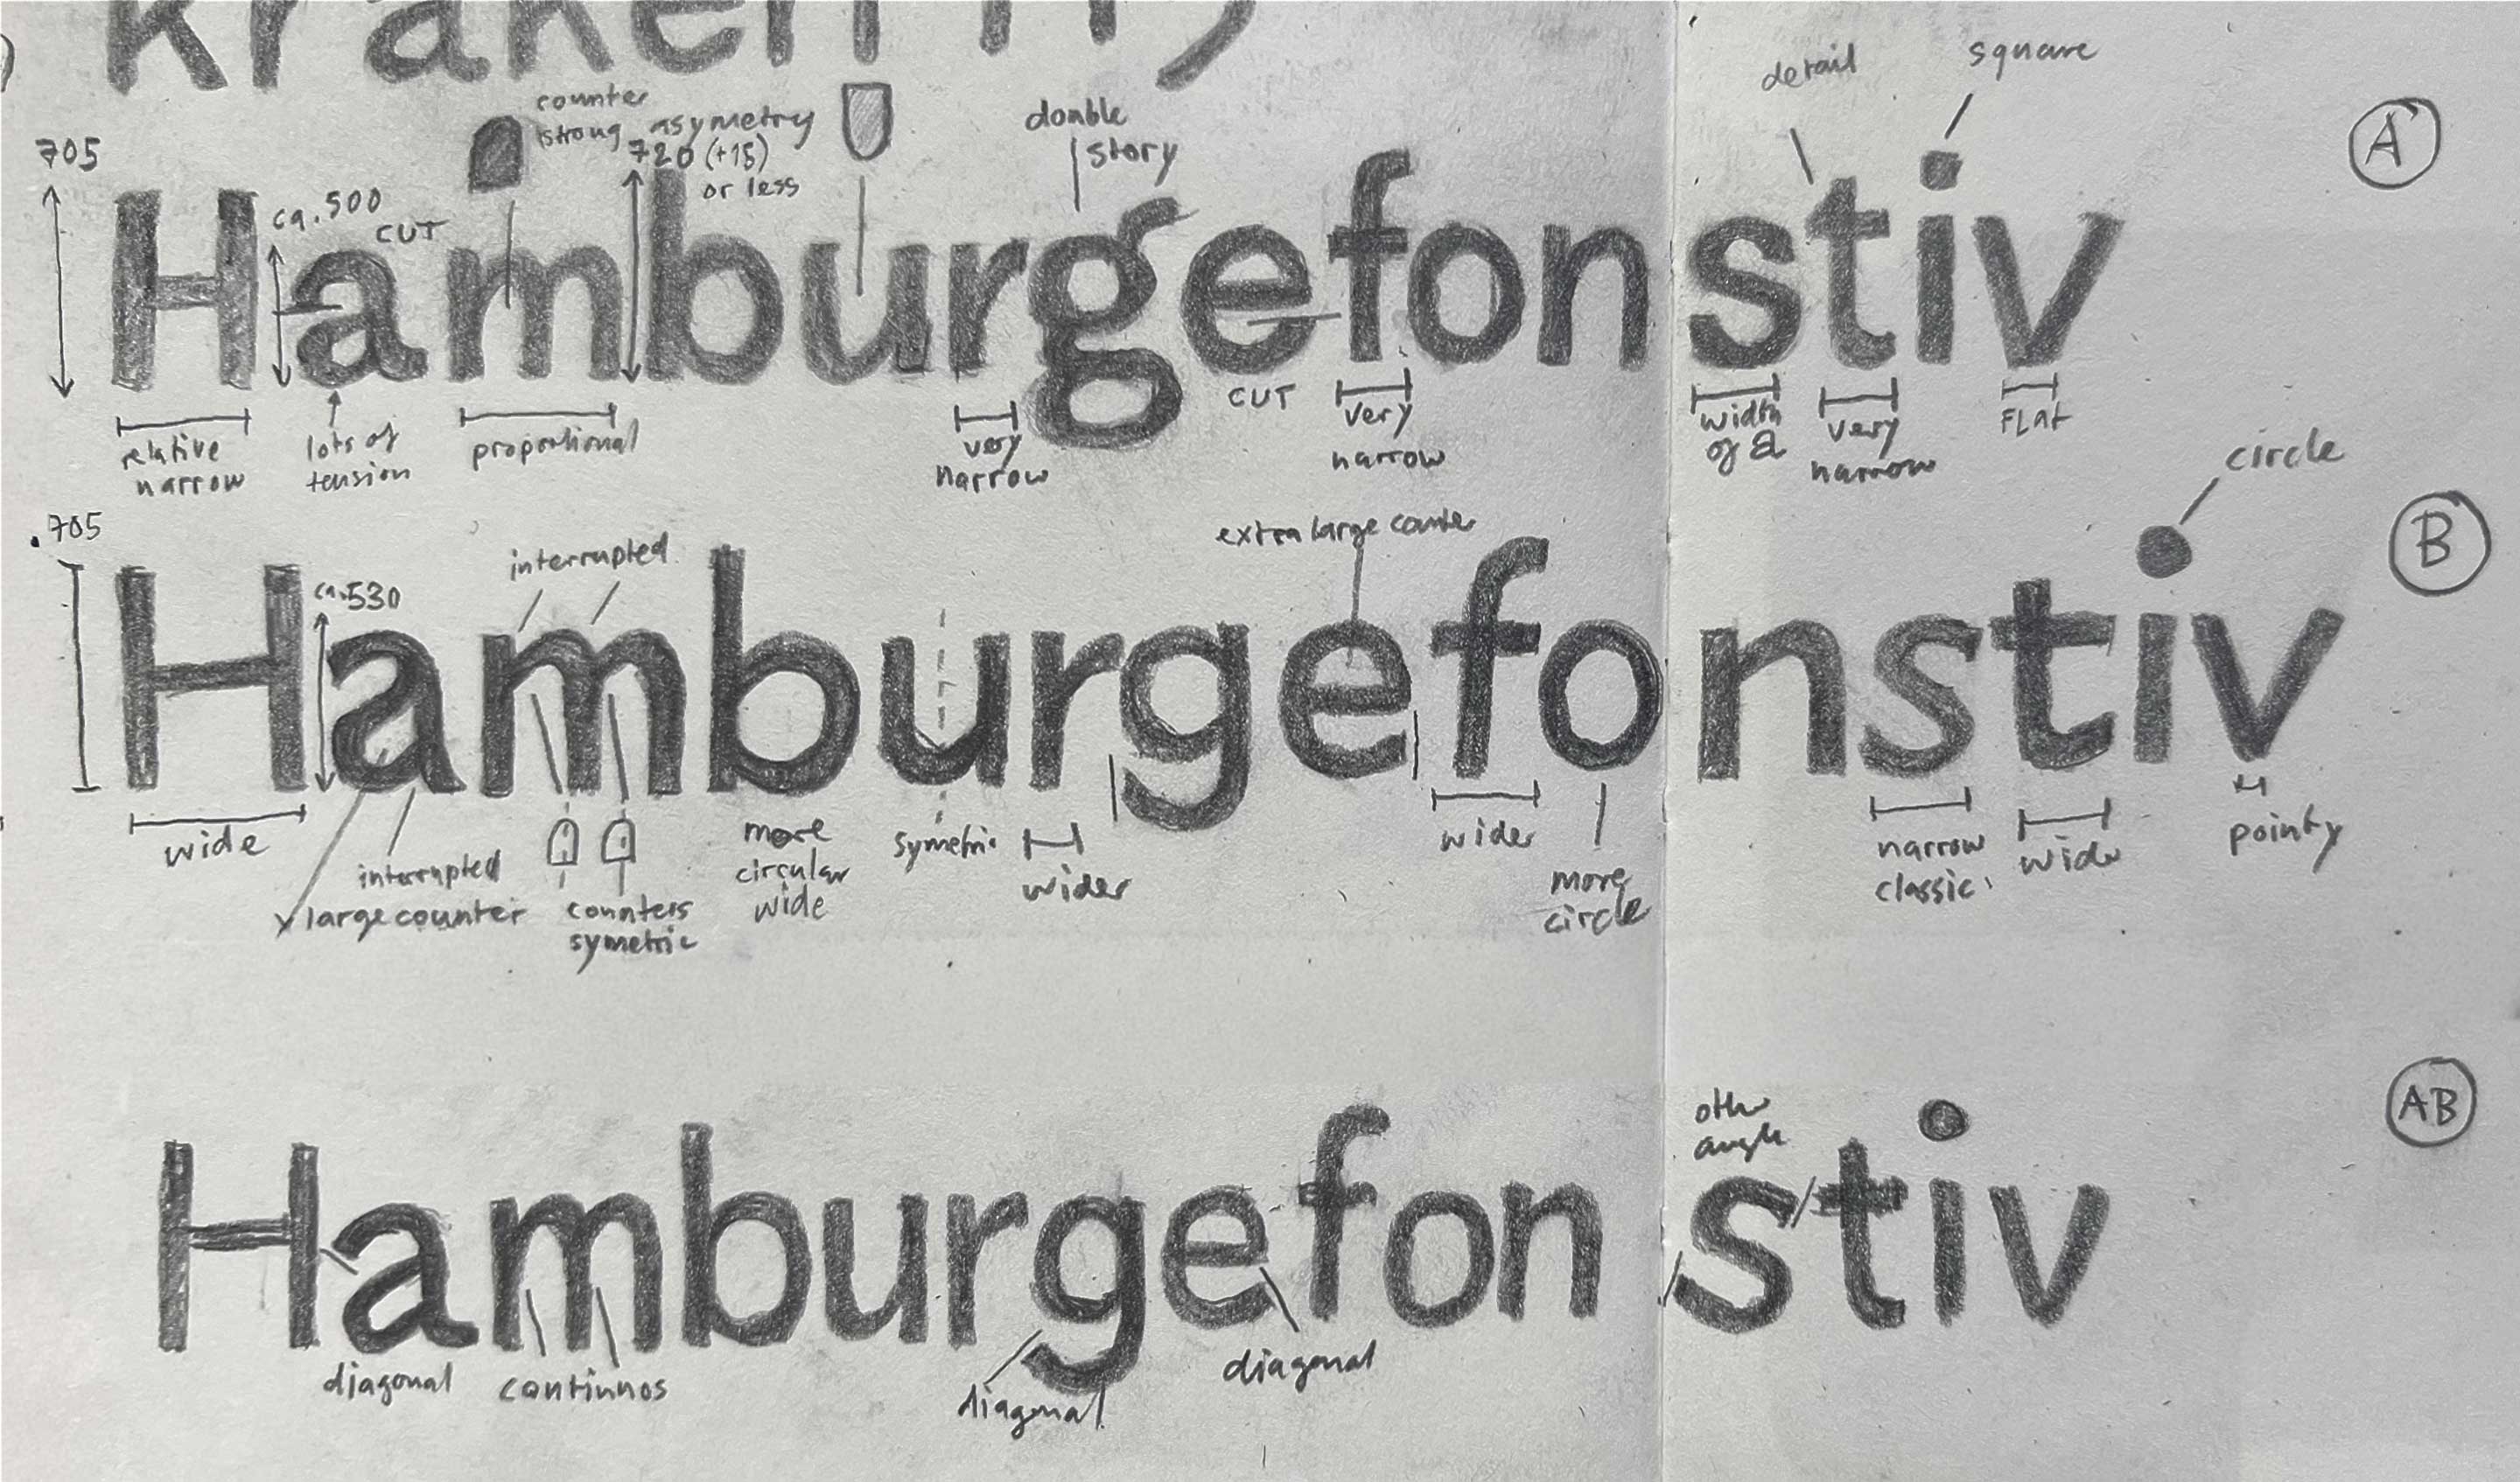 kraken
705
counter
strong asymetry
720 (+15)
or less
double
story
detail
square
A
ca. 500
CUT
Hamburgefonstiv
relative
narrow
lots of
tension
proportional
very
narrow
CUT
very
narrow
width
of a
very
narrow
FLAT
circle
.705
interrupted
extra large counter
B
ca. 530
Hamburgefonstiv
wide
interrupted
x large counter
counters
symetric
more
circular
wide
symetric
wider
wider
more
circle
narrow
classic
wide
pointy
othe
angle
AB
Hamburgefonstiv
diagonal
continuos
diagonal
diagonal